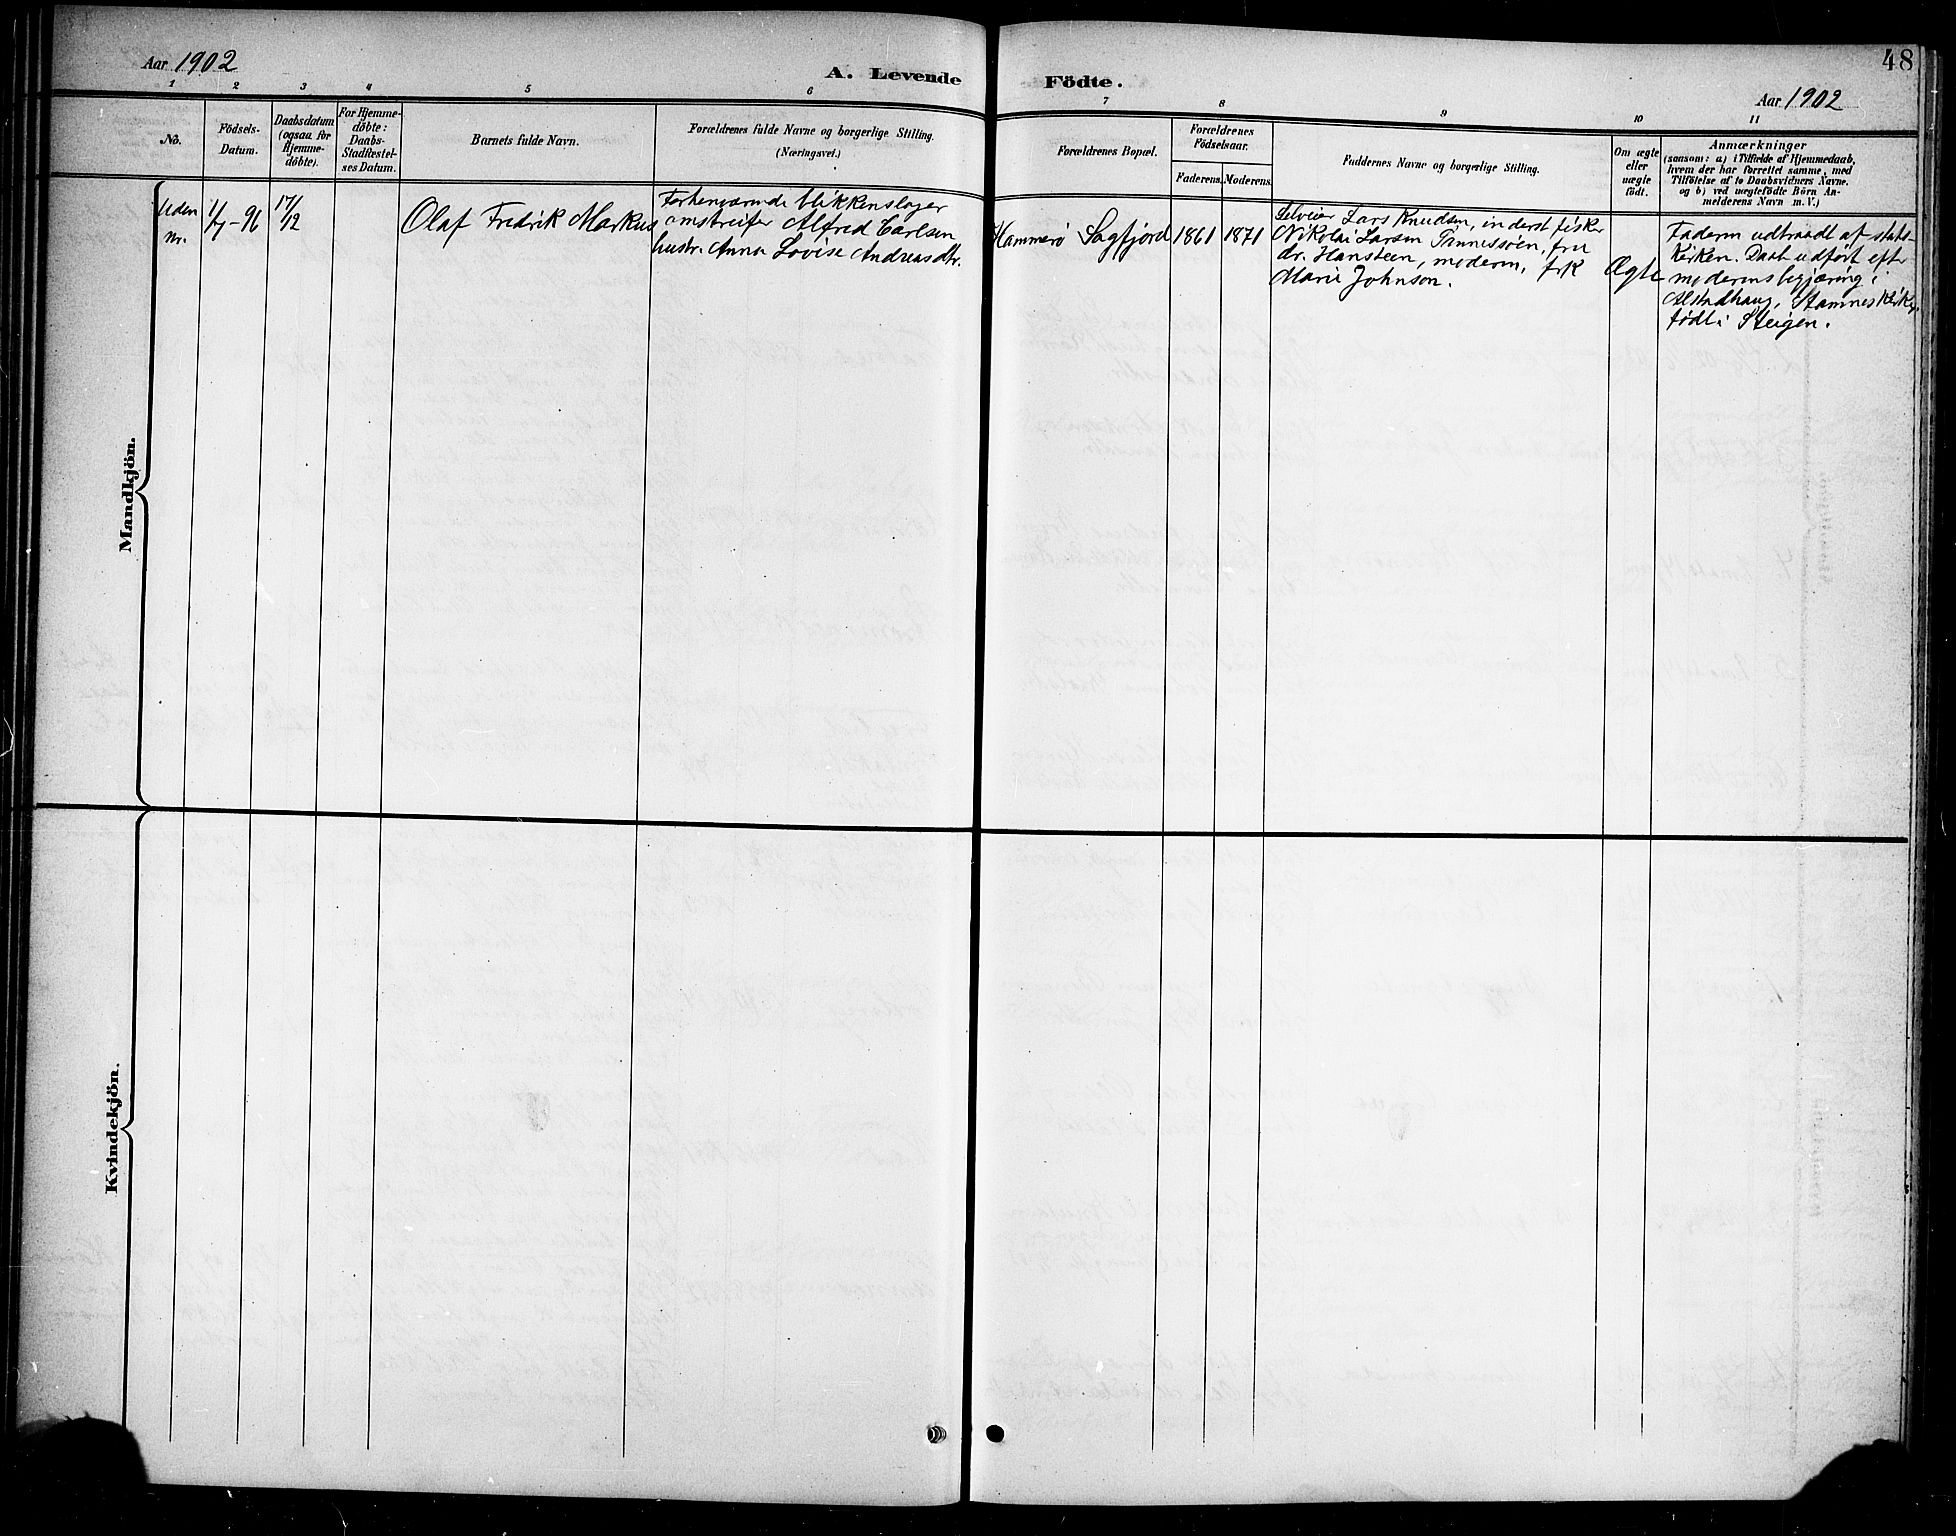 Aar 1902
A. Levende
Födte.
48
Aar 1902
1 2 3 4 5 6 7 8 9 10 11
No.
Födsels-
Datum.
Daabsdatum
(ogsaa for
Hjemme-
döbte).
For Hjemme-
döbte:
Daabs-
Stadfæstel-
ses Datum.
Barnets fulde Navn.
Forældrenes fulde Navne og borgerlige Stilling.
(Næringsvei.)
Forældrenes Bopæl.
Forældrenes
Födselsaar.
Faderens.
Moderens.
Faddernes Navne og borgerlige Stilling.
Om ægte
eller
uægte
födt.
Anmærkninger
(saasom: a) i Tilfælde af Hjemmedaab,
hvem der har forrettet samme, med
Tilföielse af to Daabsvidners Navne,
og b) ved uægtefödte Börn An-
melderens Navn m. V.)
Mandkjön.
Uden
Nr.
-96
17/12
Olaf Fredrik Markus
Forhenværende blikkenslager
omstreifer Alfred Carlsen
hustr. Anna Lovise Andreasdtr.
Hammerö Sagfjord
1861
1871
Selveier Lars Knudsen, inderst fisker
Nikolai Larsen Tennessöen, fru
dr. Hansteen, modern, frk
Marie Johnson.
Ægte
Faderen udtraadt af stats-
kirken. Daab udfört efter
moderens begjæring i
Alstadhaug, Stamnes kirke,
födt i Steigen.
Kvindekjön.